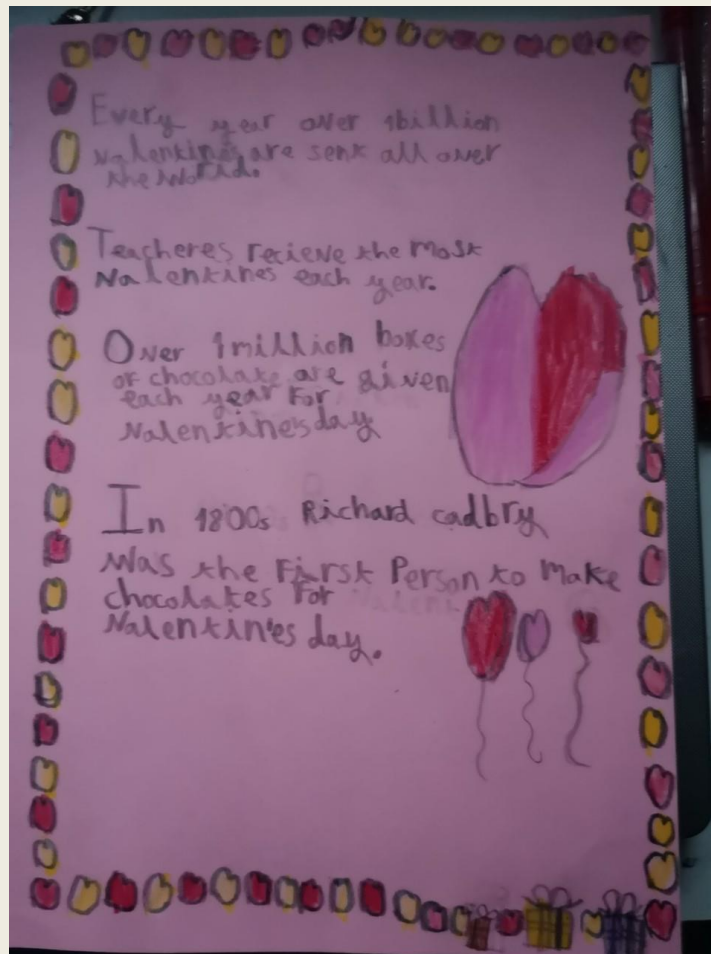 Every year over 1billion
valentines are sent all over
the world.
Teacheres recieve the most
valentines each year.
Over 1million boxes
of chocolate are given
each year for
valentine'sday
In 1800s Richard cadbry
was the First Person to make
chocolates for
valentin'es day.